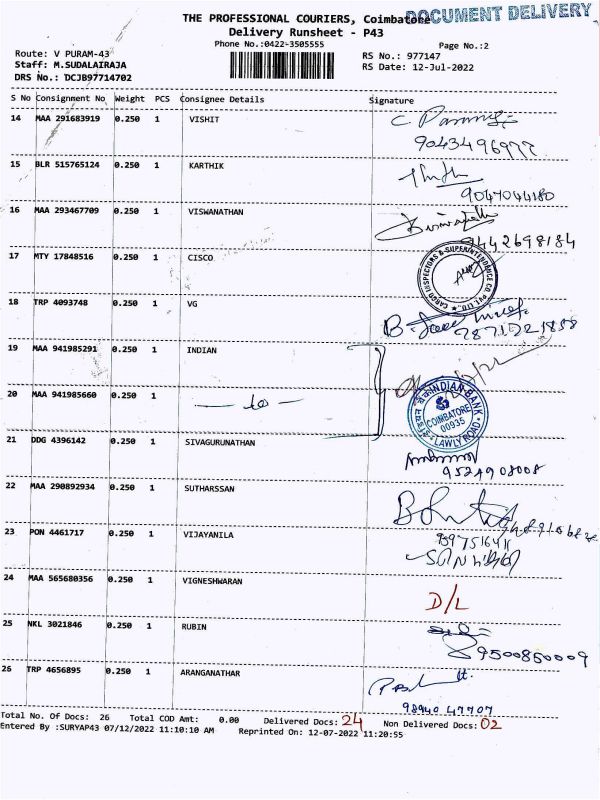 DOCUMENT DELIVERY
THE PROFESSIONAL COURIERS, Coimbatore
Delivery Runsheet - P43
Phone No.:0422-3505555
Page No.:2
Route: V PURAM-43
RS No.: 977147
Staff: M.SUDALAIRAJA
RS Date: 12-Jul-2022
DRS No.: DCJB97714702
S No Consignment No Weight PCS Consignee Details Signature
14 MAA 291683919 0.250 1 VISHIT
9043496977
15 BLR 515765124 0.250 1 KARTHIK
9047044180
16 MAA 293467709 0.250 1 VISWANATHAN
9442698184
17 MTY 17848516 0.250 1 CISCO
CARGO INSPECTORS & SUPERINTENDANCE CO. PVT. LTD.
18 TRP 4093748 0.250 1 VG
19 MAA 941985291 0.250 1 INDIAN
20 MAA 941985660 0.250 1 — do —
INDIAN BANK
COIMBATORE
00935
LAWLY ROAD
21 DDG 4396142 0.250 1 SIVAGURUNATHAN
9524908008
22 MAA 290892934 0.250 1 SUTHARSSAN
23 PON 4461717 0.250 1 VIJAYANILA
24 MAA 565680356 0.250 1 VIGNESHWARAN
D/L
25 NKL 3021846 0.250 1 RUBIN
9500850009
26 TRP 4656895 0.250 1 ARANGANATHAR
98940 47707
Total No. Of Docs: 26 Total COD Amt: 0.00 Delivered Docs: 24 Non Delivered Docs: 02
Entered By :SURYAP43 07/12/2022 11:10:10 AM Reprinted On: 12-07-2022 11:20:55